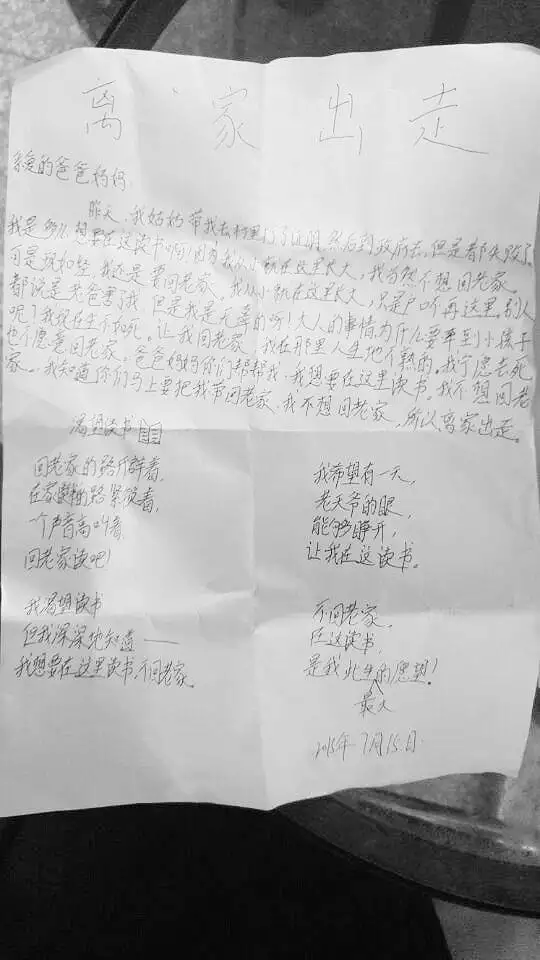 离家出走
亲爱的爸爸妈妈
昨天,我姑妈带我去村里打了证明,然后到政府去,但是都失败了
我是多么想要在这读书啊!因为我从小就在这里长大,我当然不想回老家。
可是现如今,我还是要回老家。我从小就在这里长大,只是户口不再这里。别人
都说是老爸害了我,但是我是无辜的呀!大人的事情为什么要牵到小孩子
呢?我现在生不如死。让我回老家,我在那里人生地不熟的。我宁愿去死
也不愿意回老家。爸爸妈妈你们帮帮我,我想要在这里读书。我不想回老
家。我知道你们马上要把我带回老家,我不想回老家,所以离家出走。
渴望读书
回老家的路斤斤着,
在家的路紧复着,
一个声音高叫着
回老家读吧!
我渴望读书
但我深深地知道——
我想要在这里读书,不回老家。
我希望有一天,
老天爷的眼,
能够睁开,
让我在这读书。
不回老家,
在这读书,
是我此生的愿望!
最大
2015年7月15日